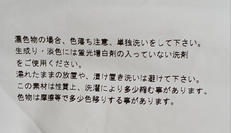 濃色物の場合、色落ち注意、単独洗いをして下さい。
生成り・淡色には蛍光増白剤の入っていない洗剤
をご使用ください。
濡れたままの放置や、漬け置き洗いは避けて下さい。
この素材は性質上、洗濯により多少縮む事があります。
色物は摩擦等で多少色移りする事が有ります。